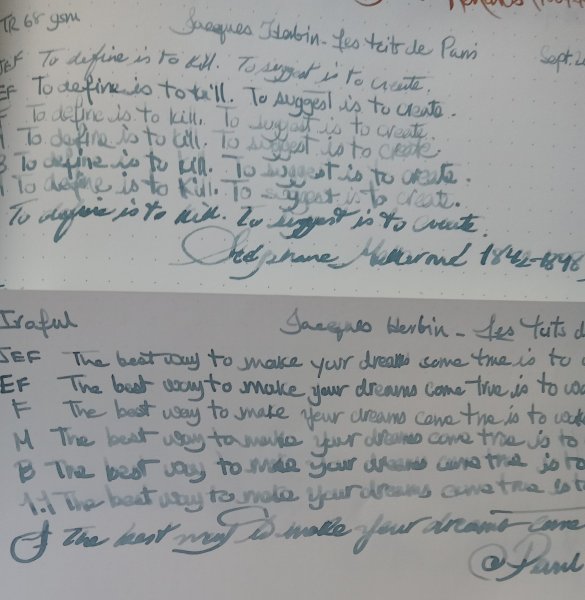 TR 68 gsm Jacques Herbin - Les toits de Paris Sept.
EF To define is to kill. To suggest is to create.
EF To define is to kill. To suggest is to create.
F To define is to kill. To suggest is to create.
To define is to kill. To suggest is to create.
B To define is to kill. To suggest is to create.
To define is to kill. To suggest is to create.
To define is to kill. To suggest is to create.
Stéphane Mallarmé 1842-1898
Iroful Jacques Herbin - Les toits d
JEF The best way to make your dreams come true is to
EF The best way to make your dreams come true is to wa
F The best way to make your dreams come true is to wake
M The best way to make your dreams come true is to
B The best way to make your dreams come true is to
1.1 The best way to make your dreams come true is to
The best way to make your dreams come
@ Paul